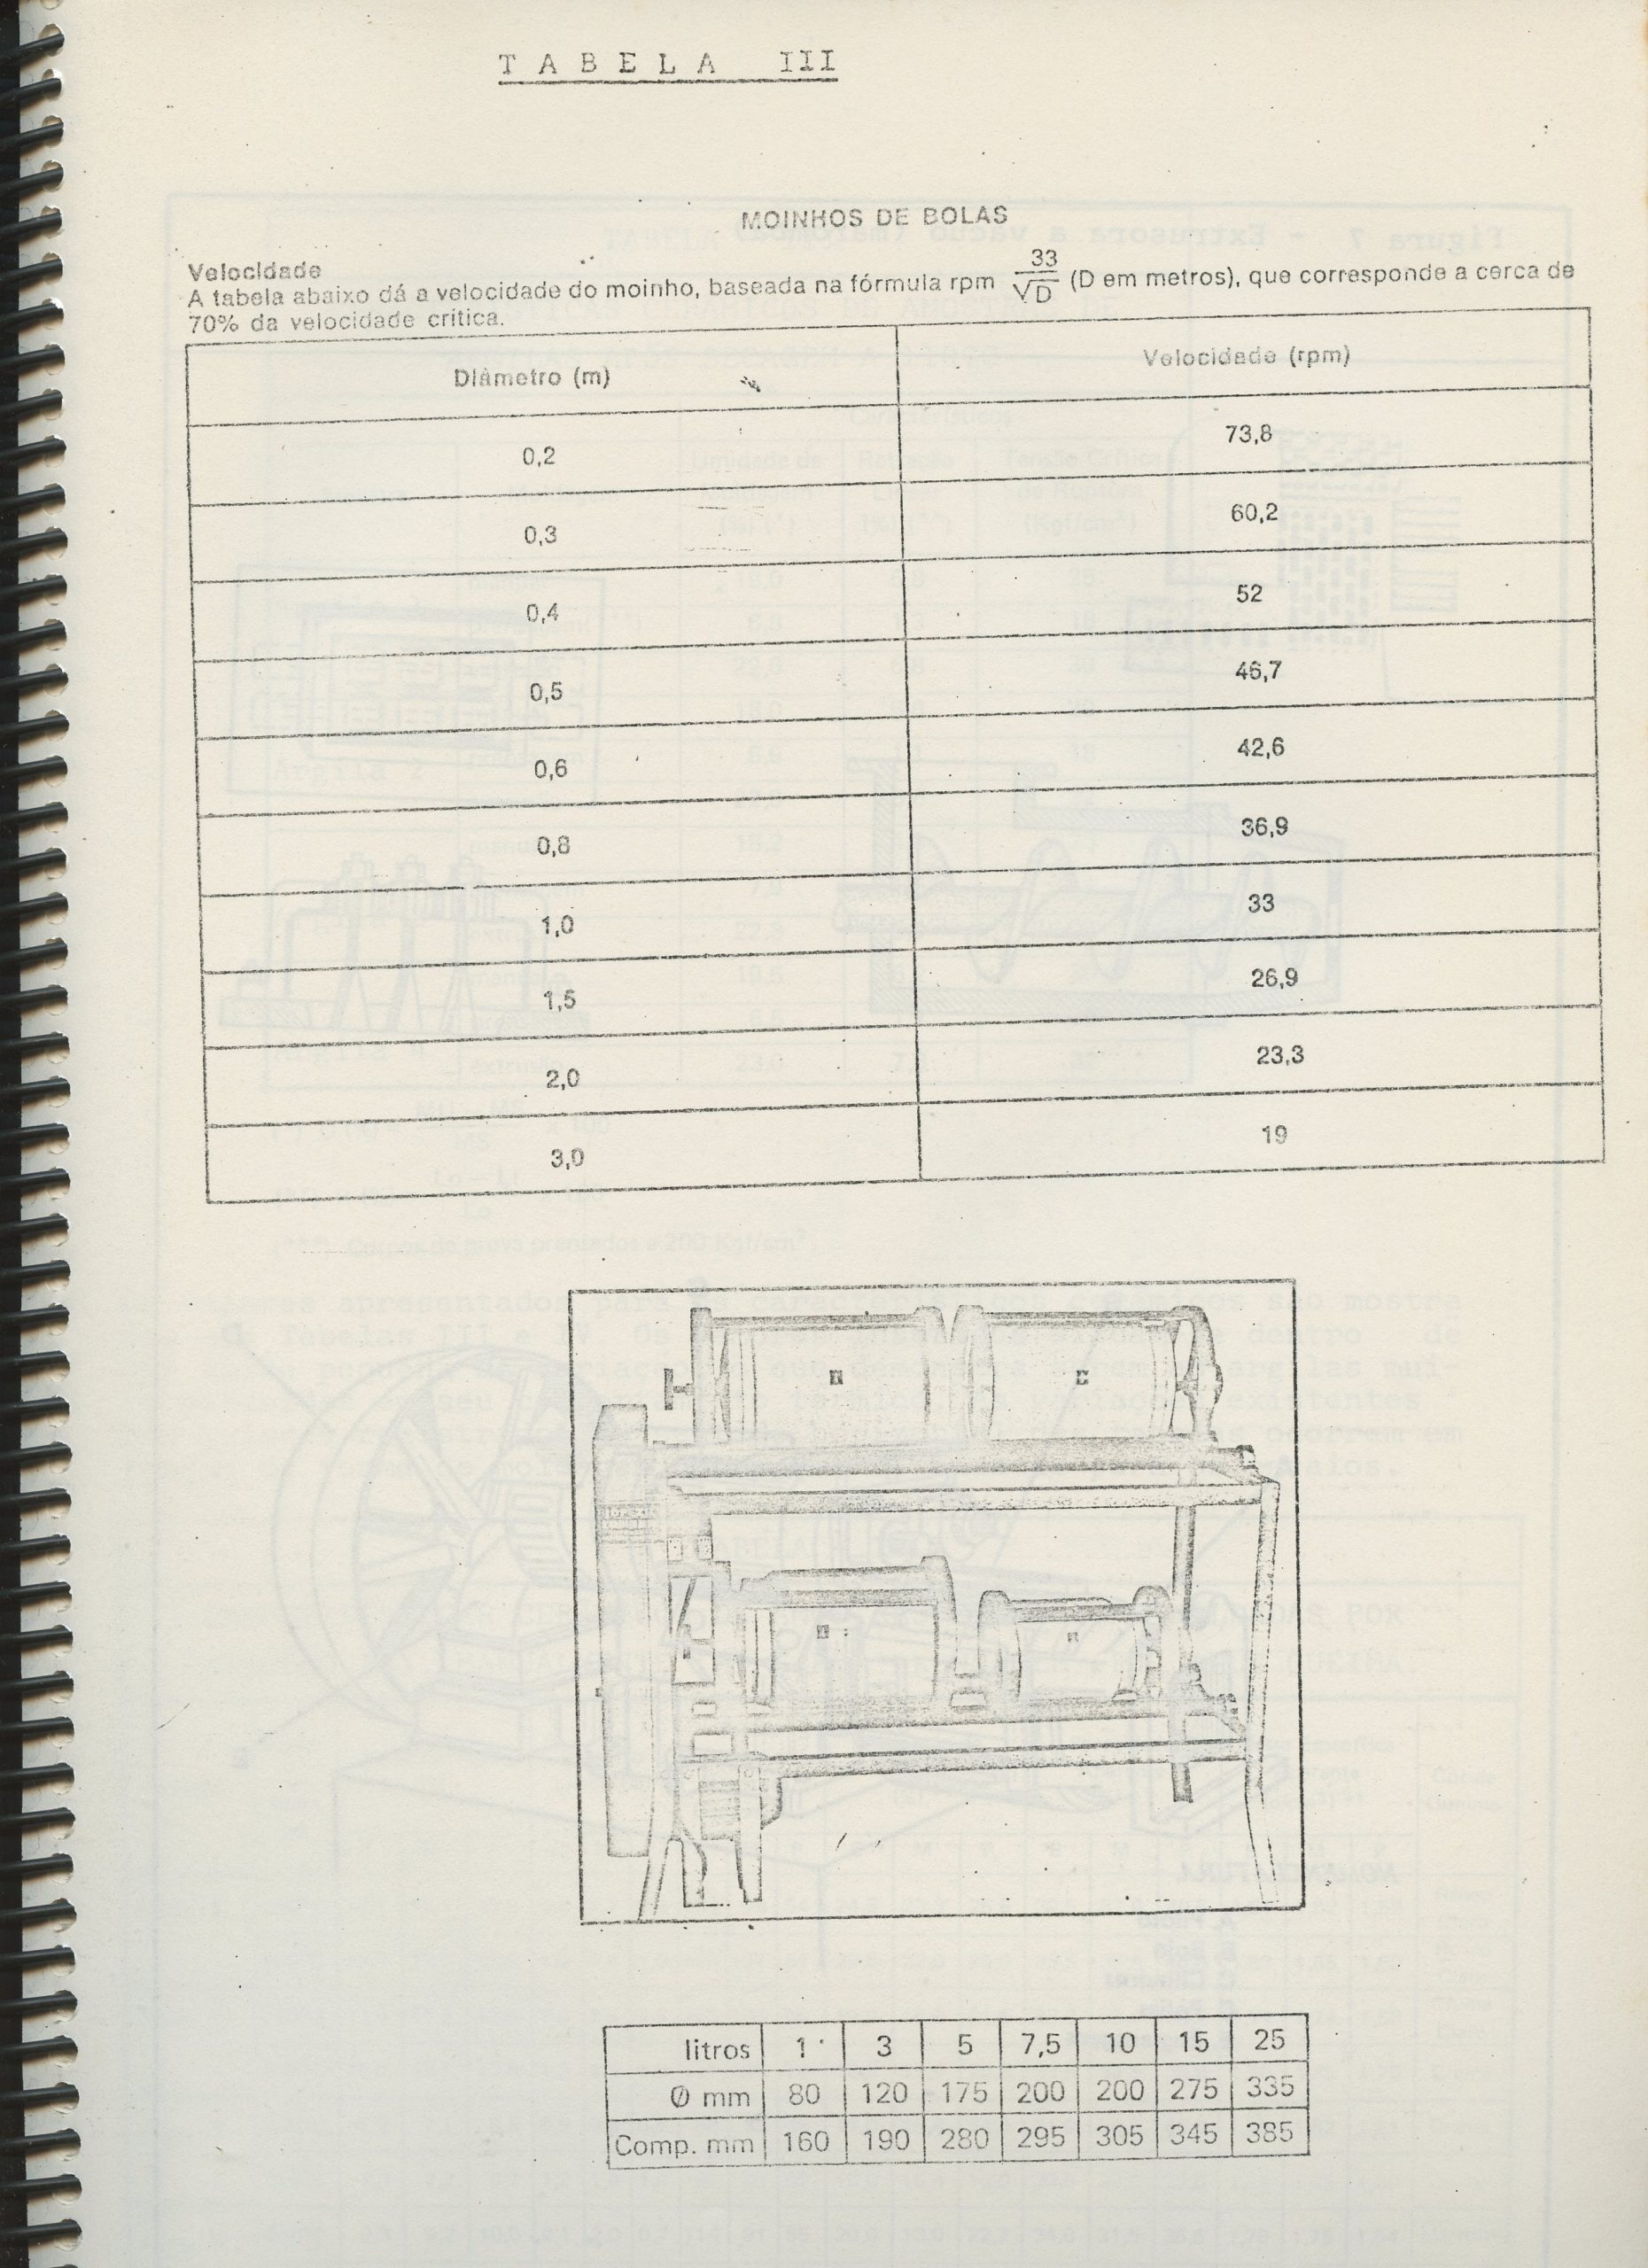 TABELA III
MOINHOS DE BOLAS
Velocidade
A tabela abaixo dá a velocidade do moinho, baseada na fórmula rpm 33/√D (D em metros), que corresponde a cerca de
70% da velocidade critica.
Diâmetro (m) Velocidade (rpm)
0,2 73,8
0,3 60,2
0,4 52
0,5 46,7
0,6 42,6
0,8 36,9
1,0 33
1,5 26,9
2,0 23,3
3,0 19
litros 1 3 5 7,5 10 15 25
Ø mm 80 120 175 200 200 275 335
Comp. mm 160 190 280 295 305 345 385